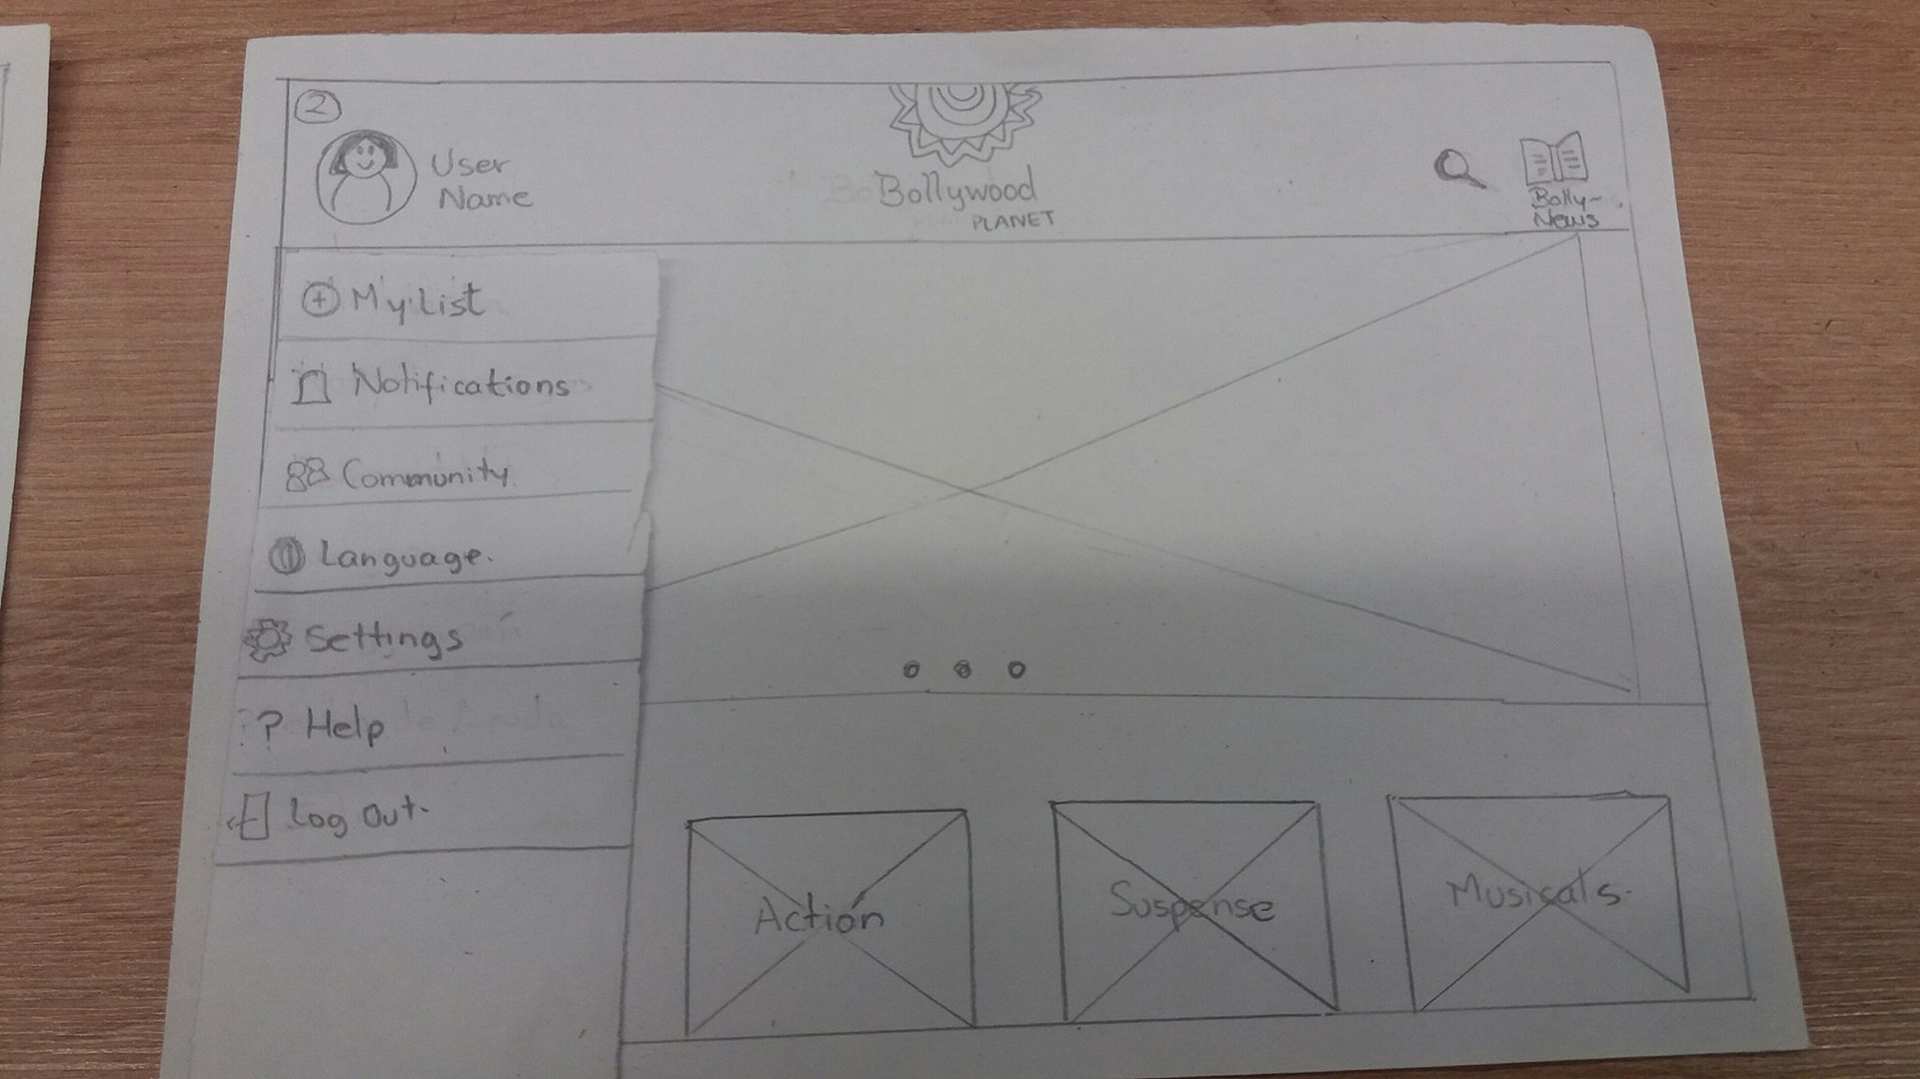 2
User
Name
Bollywood
PLANET
Bolly-
News
My List
Notifications
Community
Language.
Settings
? Help
Log Out.
Actión
Suspense
Musicals.